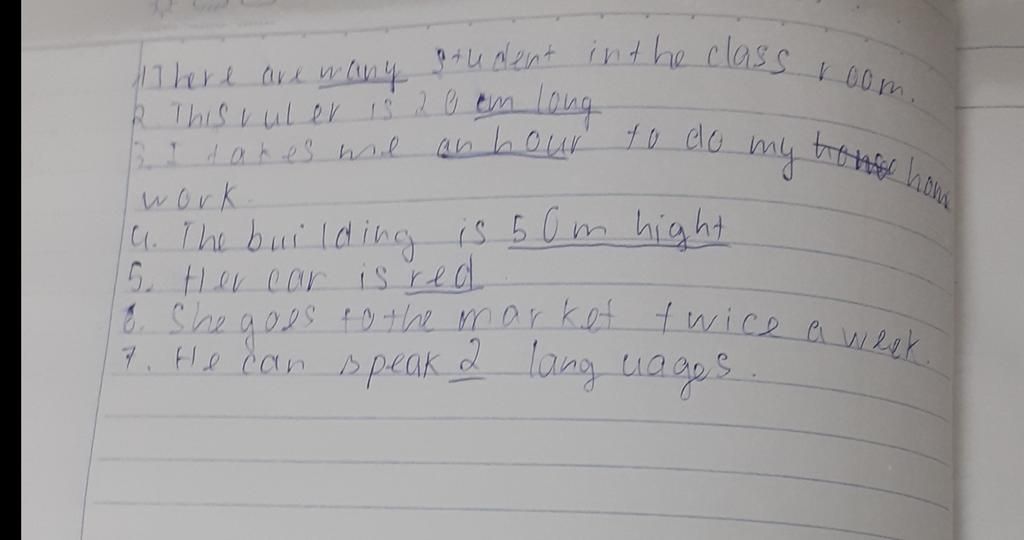 1 There are many student in the class room.
2 This ruler is 20 cm long
3. I takes me an hour to do my home hom
work.
4. The building is 50m hight
5. Her car is red
6. She goes to the market twice a week.
7. He can speak 2 languages.